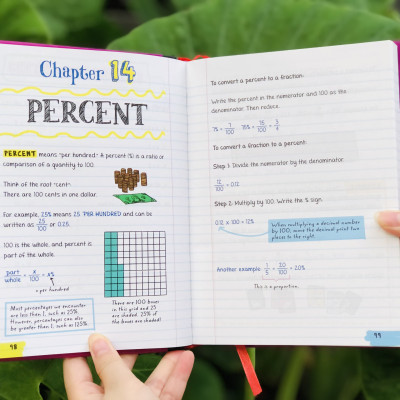 Chapter 14
PERCENT
PERCENT means "per hundred." A percent (%) is a ratio or
comparison of a quantity to 100.
Think of the root "cent":
There are 100 cents in one dollar.
For example, 25% means 25 PER HUNDRED and can be
written as 25/100 or 0.25.
100 is the whole, and percent is
part of the whole.
part/whole = x/100 = x%
x per hundred
Most percentages we encounter
are less than 1, such as 25%.
However, percentages can also
be greater than 1, such as 125%.
There are 100 boxes
in this grid and 25
are shaded. 25% of
the boxes are shaded!
98
To convert a percent to a fraction:
Write the percent in the numerator and 100 as the
denominator. Then reduce.
7% = 7/100 15% = 15/100 = 3/
To convert a fraction to a percent:
Step 1: Divide the numerator by the denominator.
12/100 = 0.12
Step 2: Multiply by 100. Write the % sign.
0.12 x 100 = 12%
When multiplying a decimal number
by 100, move the decimal point two
places to the right.
Another example: 1/5 = 20/100 = 20%
This is a proportion.
99